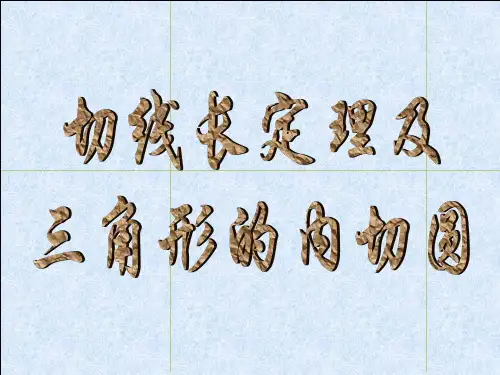 切线长定理及
三角形的内切圆